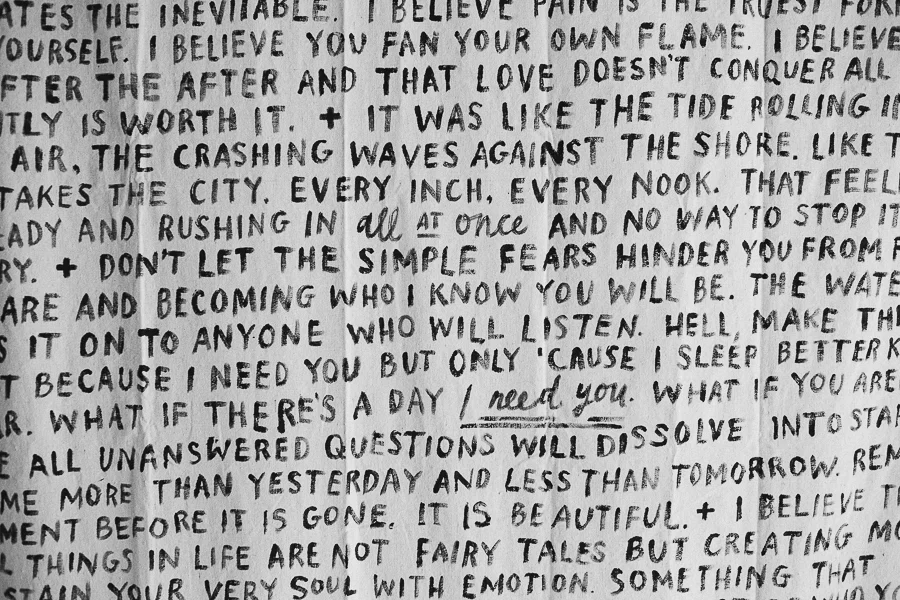 ATES THE INEVITABLE. I BELIEVE PAIN IS THE TRUEST FORM
YOURSELF. I BELIEVE YOU FAN YOUR OWN FLAME. I BELIEVE
FTER THE AFTER AND THAT LOVE DOESN'T CONQUER ALL
NTLY IS WORTH IT. + IT WAS LIKE THE TIDE ROLLING IN
AIR, THE CRASHING WAVES AGAINST THE SHORE. LIKE T
TAKES THE CITY. EVERY INCH, EVERY NOOK. THAT FEELI
EADY AND RUSHING IN all AT once AND NO WAY TO STOP IT
RY. + DON'T LET THE SIMPLE FEARS HINDER YOU FROM
ARE AND BECOMING WHO I KNOW YOU WILL BE. THE WATE
S IT ON TO ANYONE WHO WILL LISTEN. HELL, MAKE THE
T BECAUSE I NEED YOU BUT ONLY 'CAUSE I SLEEP BETTER
R. WHAT IF THERE'S A DAY I need you. WHAT IF YOU ARE
E ALL UNANSWERED QUESTIONS WILL DISSOLVE INTO STAR
ME MORE THAN YESTERDAY AND LESS THAN TOMORROW. REM
MENT BEFORE IT IS GONE. IT IS BEAUTIFUL. + I BELIEVE T
L THINGS IN LIFE ARE NOT FAIRY TALES BUT CREATING MO
STAIN YOUR VERY SOUL WITH EMOTION. SOMETHING THAT